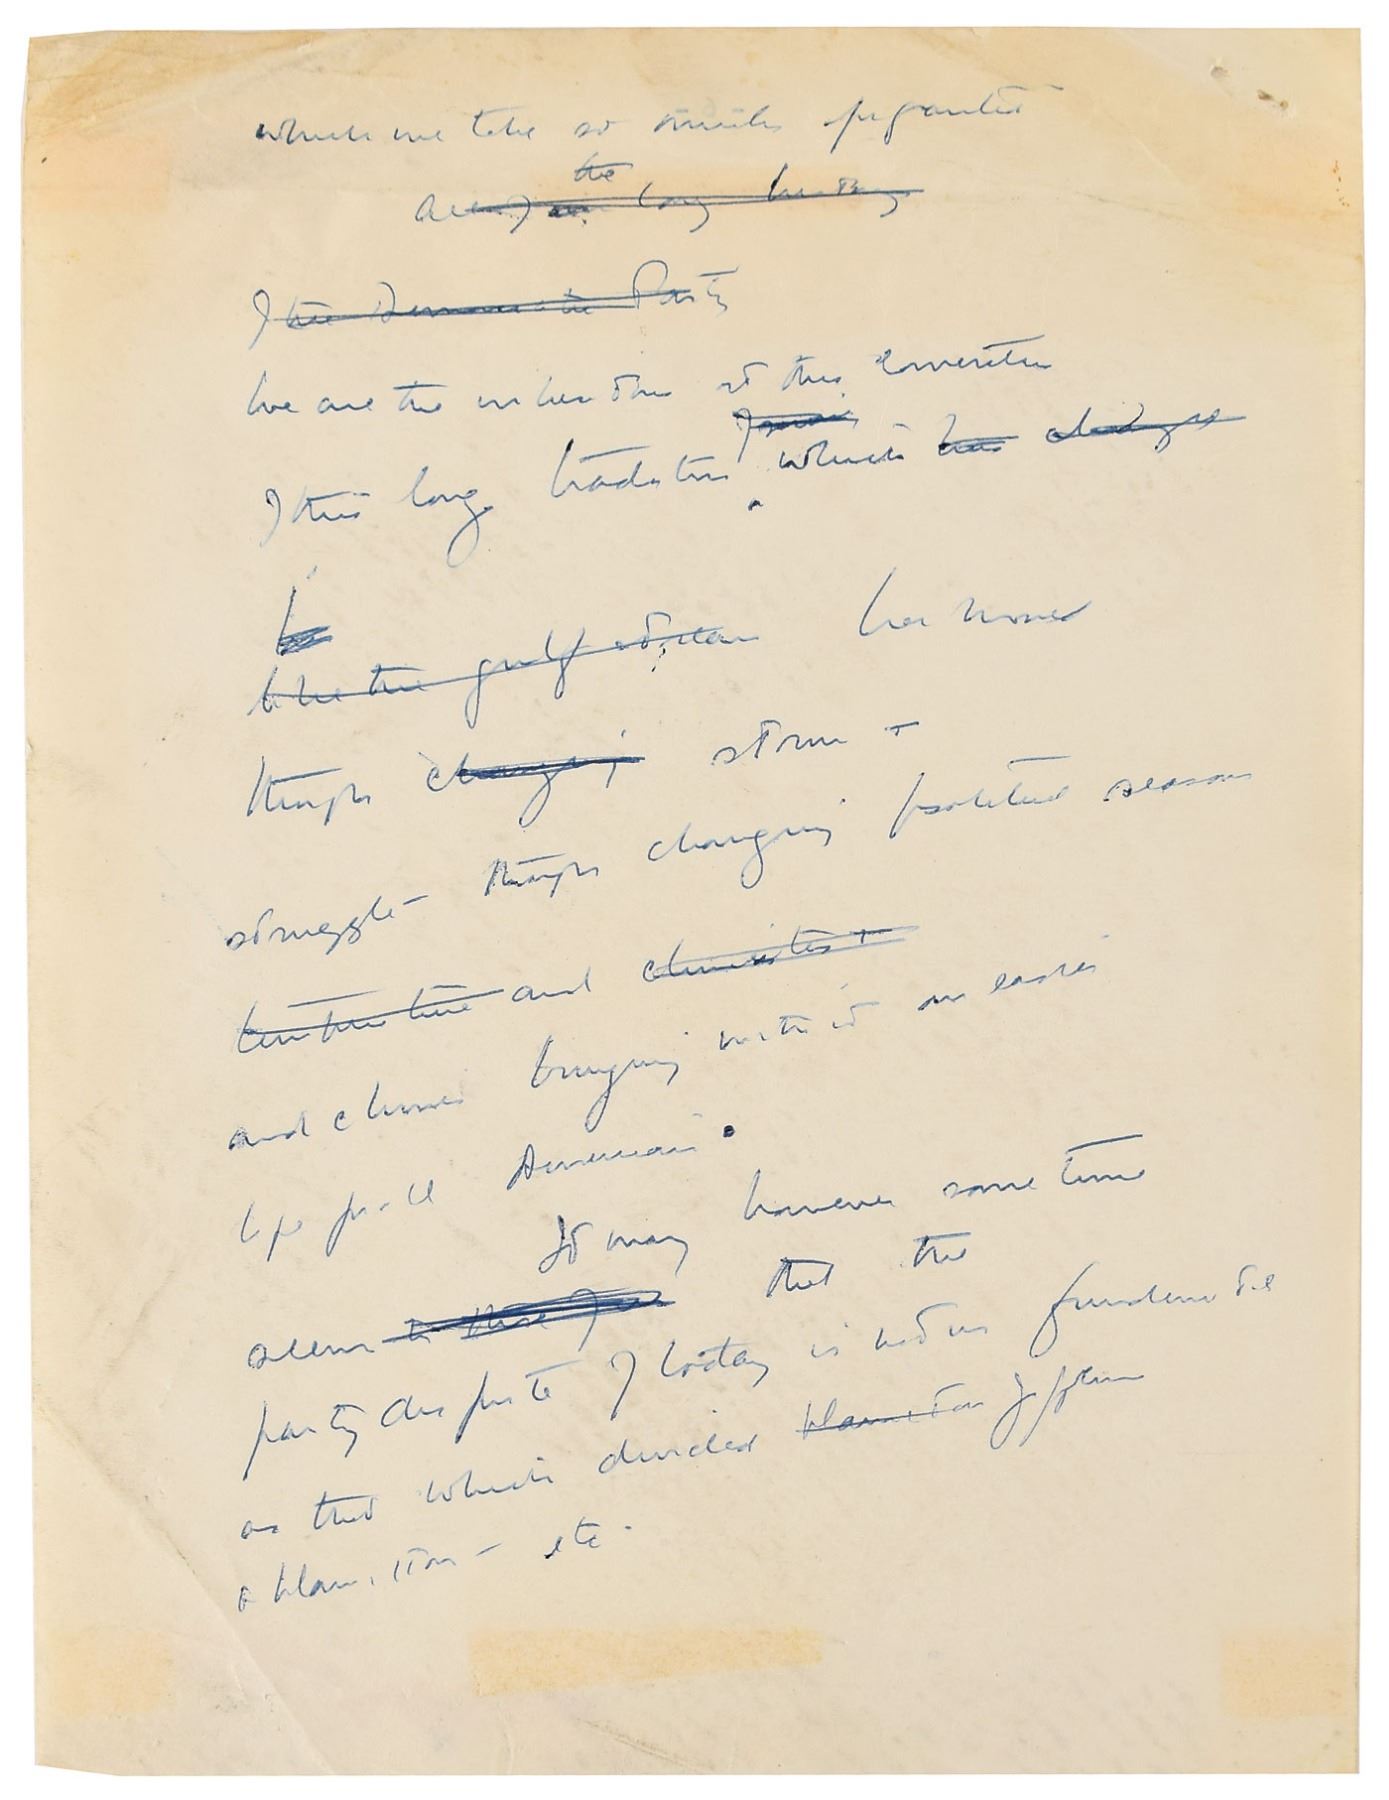 which we take so much for granted
the
all of long history
of the Democratic Party
We are the inheritors at this convention
of this long tradition which has
like the gulf stream has moved
through changing storm +
struggle - through changing political seasons
temperature and climates +
and climes bringing with it an easier
life for all Americans.
It may however some time
seem to those of us that the
party dispute of today is not as fundamental
as that which divided Hamilton Jefferson
& Hamilton - etc.